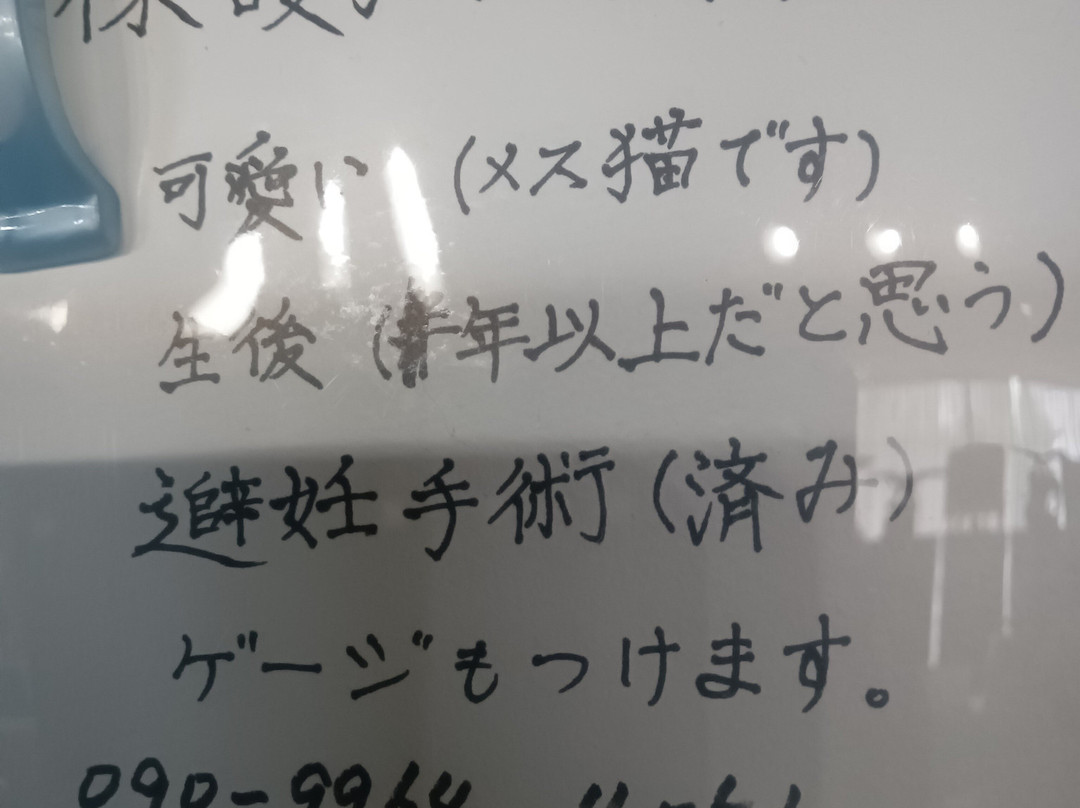 可愛い (メス猫です)
生後 (半年以上だと思う)
避妊手術 (済み)
ゲージもつけます。
090-9964